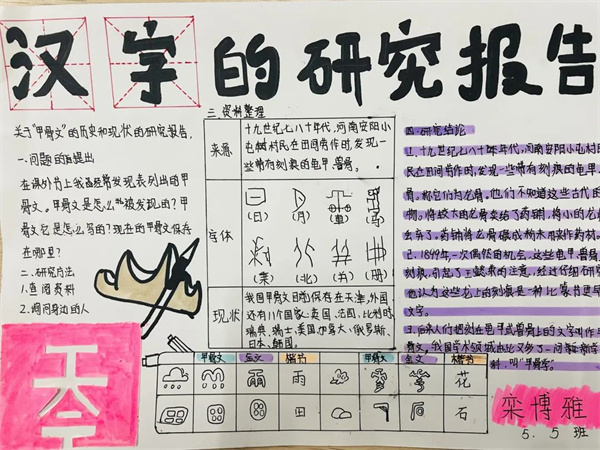 汉字的研究报告
关于"甲骨文"的历史和现状的研究报告
一.问题的提出
在课外书上我经常发现表列出的甲
骨文。甲骨文是怎么被发现的？甲
骨文它是怎么写的？现在的甲骨文保存
在哪里？
二.研究方法
1.查阅资料
2.询问身边的人
三.资料整理
来源
十九世纪七八十年代，河南安阳小
屯村村民在田间劳作时，发现一
些带有刻痕的龟甲、兽骨。
字体
(日) (月) (車) (馬)
(栗) (北) (井) (册)
现状
我国甲骨文目前保存在天津，外国
还有八个国家：英国、法国、比利时
瑞典、瑞士、美国、加拿大、俄罗斯、
日本、韩国。
甲骨文 金文 楷书 甲骨文 金文 楷书
雨 花
田 石
四.研究结论
1.十九世纪七八十年代，
民在田间劳作时，发现一些带有刻痕的龟甲
骨，称它们为龙骨。他们不知道这些古代的
物，将较大的龙骨卖给了药铺，将小的龙
去弃了。药铺将龙骨碾成粉末用来作药材。
2.1899年一次偶然的机会，这些龟甲、兽骨
刻痕，引起了王懿荣的注意。经过仔细研
他认为这些龙骨上的刻痕是一种比篆书更早
文字。
3.后来人们把刻在龟甲或兽骨上的文字叫作
骨文，我国学术领域由此又多了一门新
科，叫"甲骨学。
天
栾博雅
5.5班